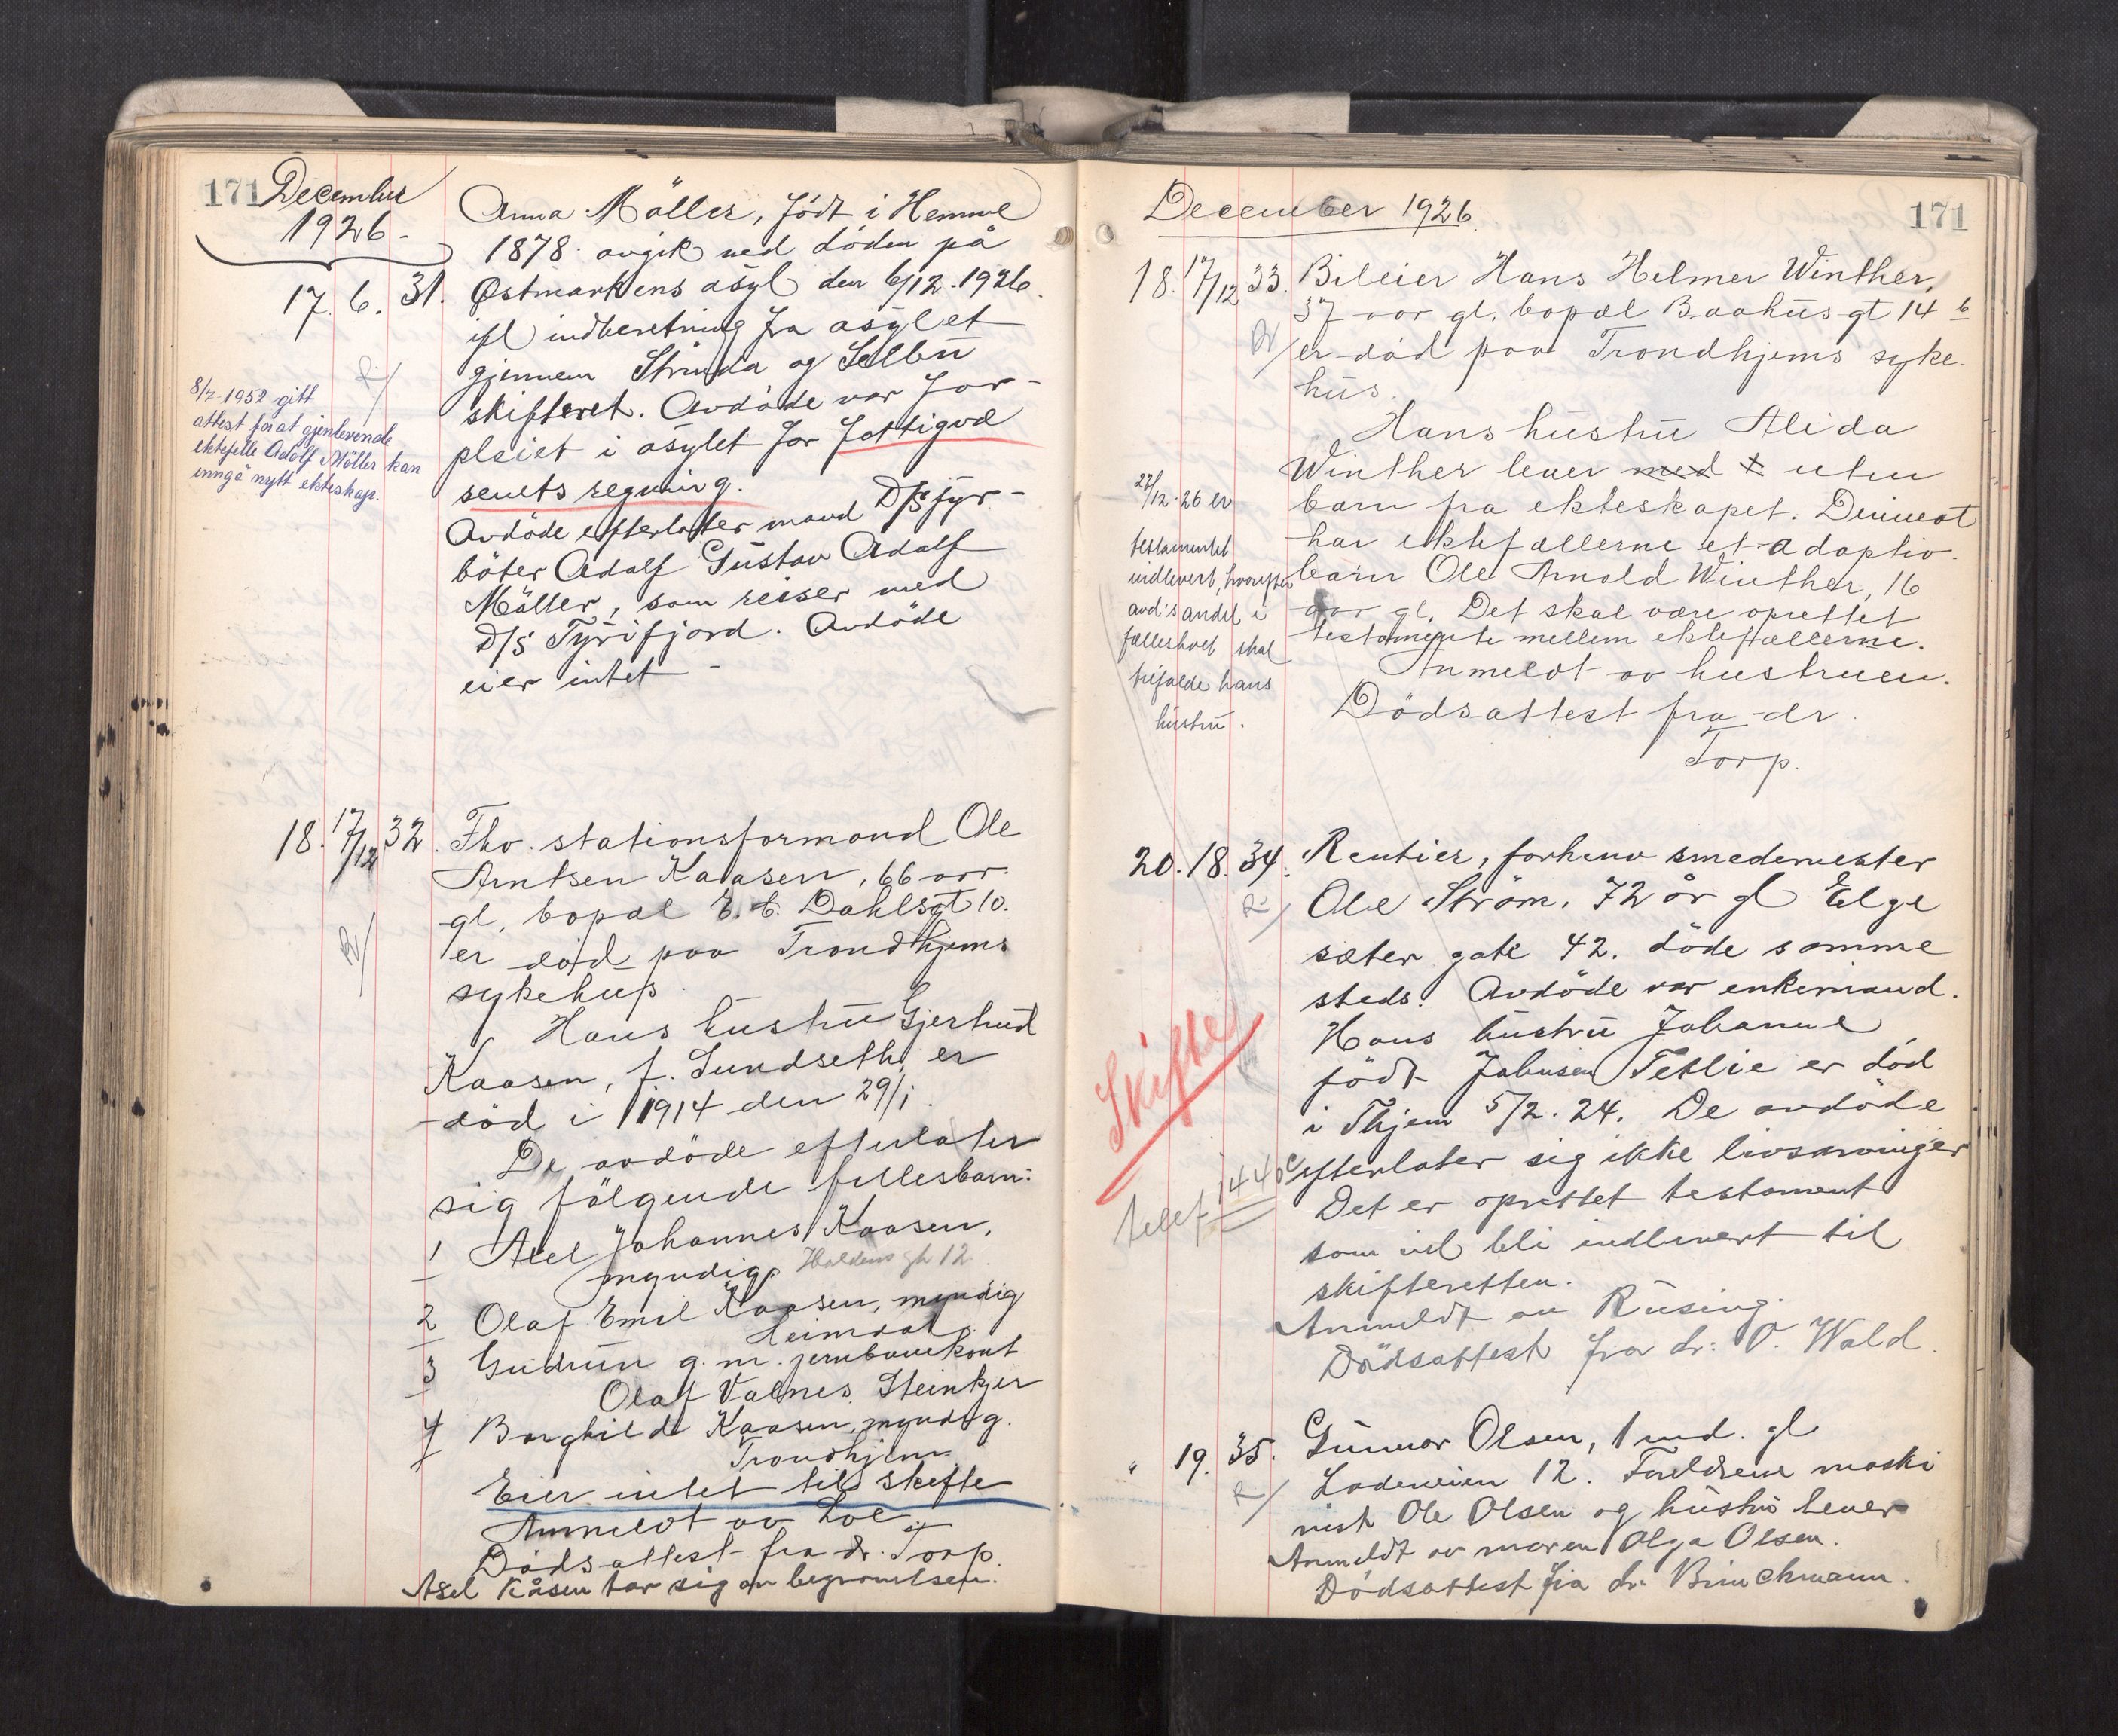 171 December
1926 -
17. 6. 31. Anna Möller, födt i Hemne
1878 avgik ved döden på
Østmarkens asyl den 6/12.1926.
ifl indberetning fra asylet
gjennem Strinda og Selbu
skifteret. Avdöde var for-
pleiet i asylet for fattigvæ
senets regning.
Avdöde efterlater mand D/S fyr-
böter Adolf Gustav Adolf
Möller, som reiser med
D/S Tyrifjord. Avdöde
eier intet -
8/7-1952 gitt
attest for at gjenlevende
ektefelle Adolf Möller kan
inngå nytt ekteskap.
18. 17/12 32. Fhv. stationsformand Ole
Arntsen Kaasen, 66 aar
gl, bopæl E. C. Dahlsgt 10.
er död paa Trondhjems
sykehus.
Hans hustru Gjertrud
Kaasen, f. Sundseth, er
död i 1914 den 29/1.
De avdöde efterlater
sig fölgende fellesbarn:
1 Axel Johannes Kaasen,
myndig. Haldens gt 12
2 Olaf Emil Kaasen, myndig
Heimdal.
3 Gudrun g. m. jernbanekont
Olaf Valnes. Steinkjer
4 Borghild Kaasen, myndig.
Trondhjem
Eier intet til skifte
Anmeldt av
Dödsattest fra dr. Torp.
Axel Kåsen tar sig av begravelsen.
December 1926. 171
18. 17/12 33. Bileier Hans Helmer Winther,
37 aar gl. bopæl Baahus gt 14 b
er död paa Trondhjems syke-
hus.
Hans hustru Alida
Winther lever med uten
barn fra ekteskapet. Derimot
har ektefællerne et adoptiv-
barn Ole Arnold Winther, 16
aar gl. Det skal være oprettet
testamente mellem ektefællerne.
Anmeldt av hustruen.
Dödsattest fra dr.
Torp.
27/12.26 er
testamentet
indlevert, hvorefter
avd's andel i
fællesboet skal
tilfalde hans
hustru.
20. 18. 34. Rentier, forhenv smedemester
Ole Ström, 72 år gl Elge
sæter gate 42. döde samme
steds. Avdöde var enkemand.
Hans hustru Johanne
födt Johnsen Tetlie er död
i Thjem 5/2.24. De avdöde
efterlater sig ikke livsarvinger
Det er oprettet testament
som vil bli indlevert til
skifteretten.
Anmeldt av Rusing.
Dödsattest fra dr: O. Wald.
Skifte
telef 1440
" 19. 35. Gunnar Olsen, 1 md. gl
Ladeveien 12. Forældrene maski
nist Ole Olsen og hustru lever
Anmeldt av moren Olga Olsen.
Dödsattest fra dr. Brinchmann.